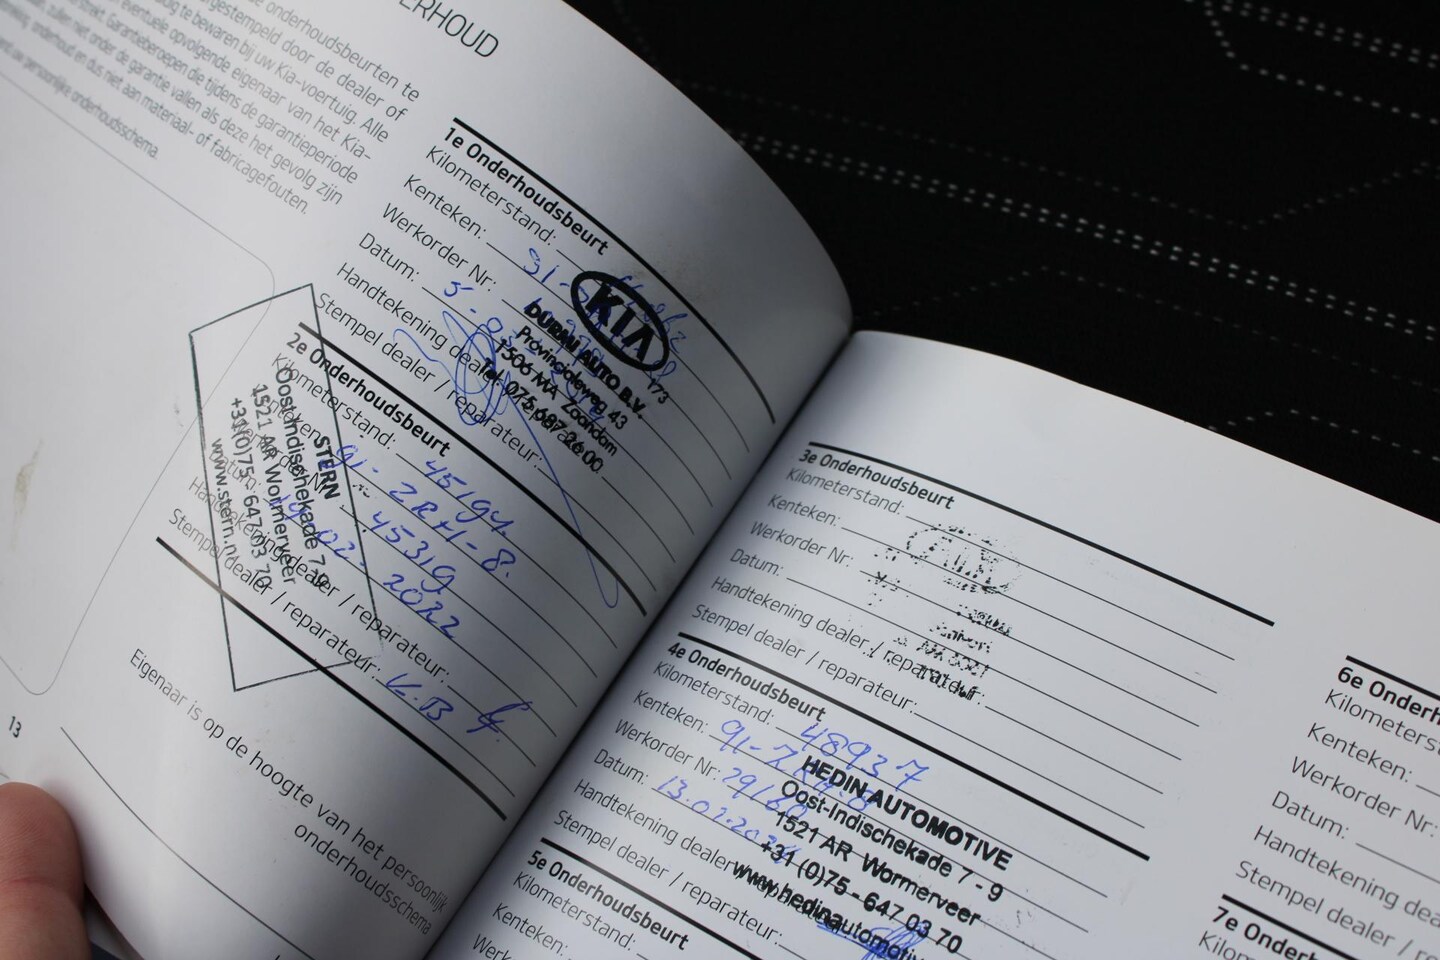 ERHOUD
de onderhoudsbeurten te
gestempeld door de dealer of
te bewaren bij uw Kia-voertuig. Alle
eventuele opvolgende eigenaar van het Kia-
Garantieberoepen die tijdens de garantieperiode
zullen niet onder de garantie vallen als deze het gevolg zijn
onderhoud en dus niet aan materiaal- of fabricagefouten.
uw persoonlijke onderhoudsschema.
1e Onderhoudsbeurt
Kilometerstand:
Kenteken:
Werkorder Nr:
Datum:
Handtekening dealer / reparateur:
Stempel dealer / reparateur:
KIA
173
DURAU AUTO B.V.
Provincialeweg 43
1506 MA Zaandam
Tel. 075 687 26 00
2e Onderhoudsbeurt
Kilometerstand: 45194
Kenteken: 91-ZRH-8.
Werkorder Nr: 45319
Datum: 02-2022
Handtekening dealer / reparateur:
Stempel dealer / reparateur: V.B
STERN
Oost Indischekade 7-9
1521 AR Wormerveer
+31(0)75 - 647 03 70
www.stern.nl
Eigenaar is op de hoogte van het persoonlijk
onderhoudsschema
13
3e Onderhoudsbeurt
Kilometerstand:
Kenteken:
Werkorder Nr:
Datum:
Handtekening dealer / reparateur:
Stempel dealer / reparateur:
4e Onderhoudsbeurt
Kilometerstand: 48937
Kenteken: 91-
Werkorder Nr:
Datum:
Handtekening dealer
Stempel dealer / reparateur:
HEDIN AUTOMOTIVE
Oost-Indischekade 7 - 9
1521 AR Wormerveer
+31 (0)75 - 647 03 70
www.hedinautomotiv
5e Onderhoudsbeurt
Kilometerstand:
Kenteken:
6e Onderh
Kilometerst
Kenteken:
Werkorder Nr:
Datum:
Handtekening dea
Stempel dealer / r
7e Onderh
Kilom